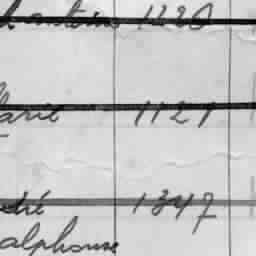 antoine 1220
arie 1121
dré 1347
alphonse